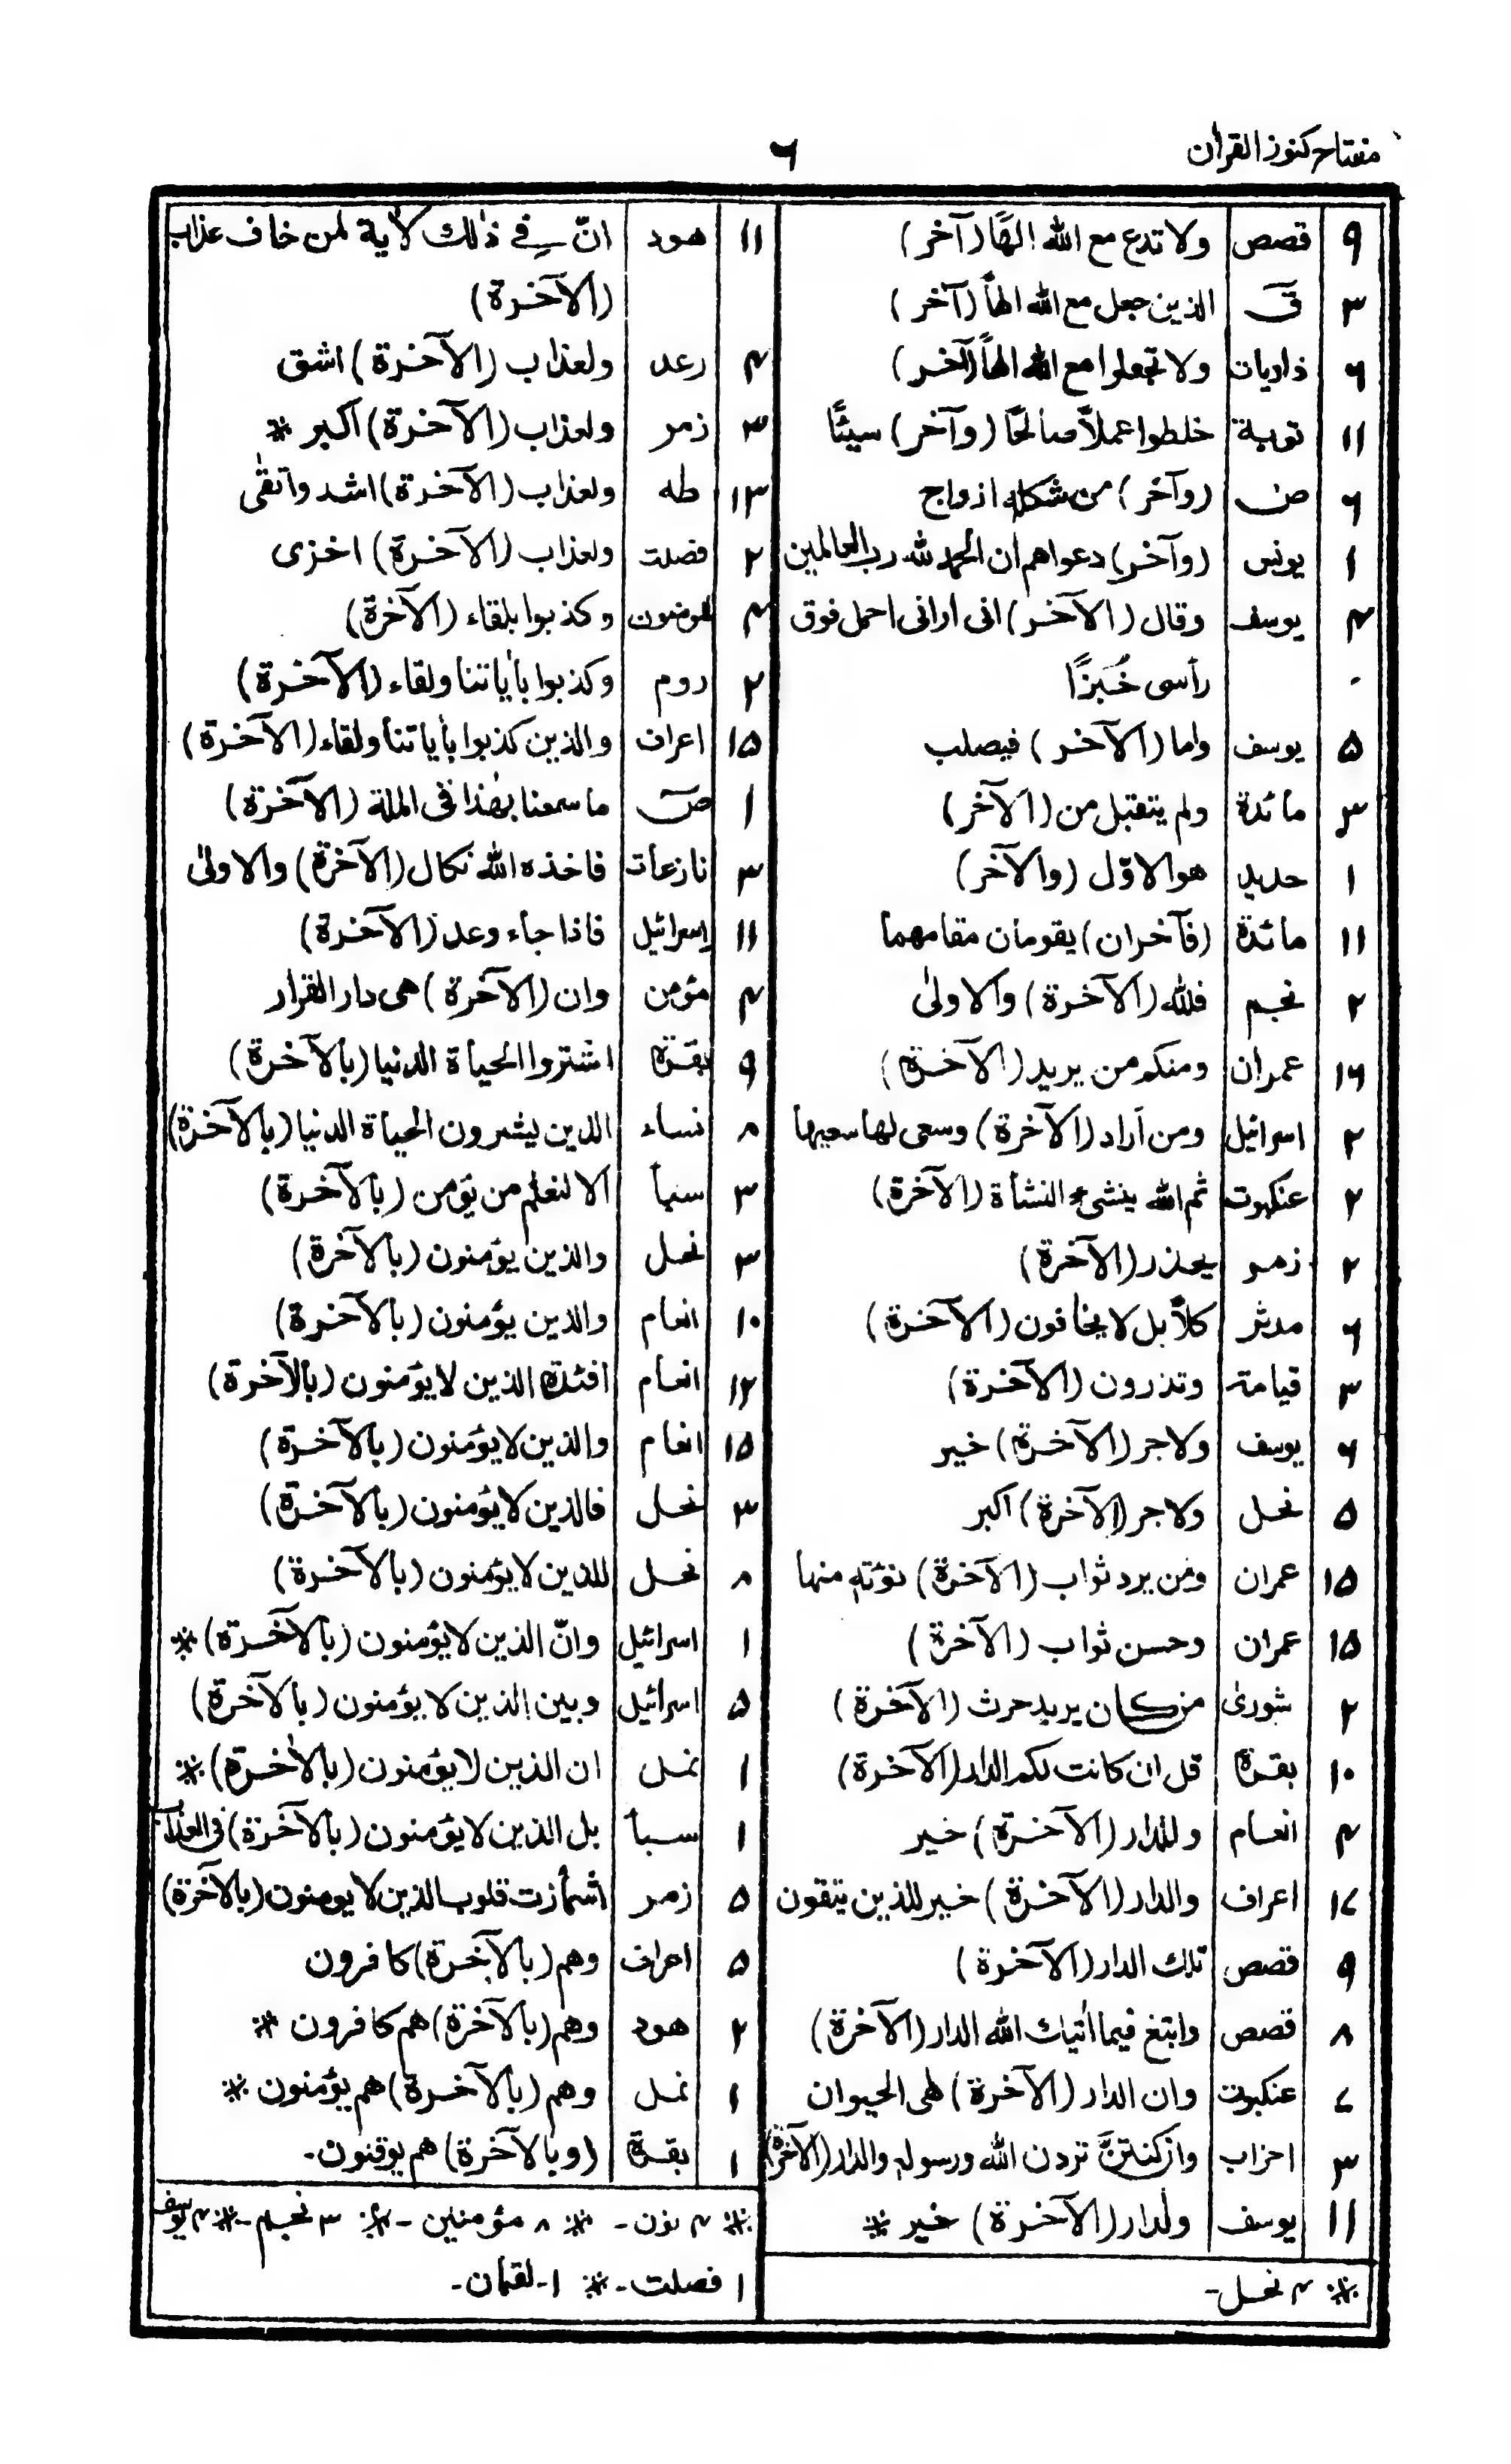 مفتاح كنوز القرأن
٦
٩ قصص ولا تدع مع الله الهًا (آخر)
٣ قۤ الذين جعل مع الله الهاً (آخر)
٦ ذاريات ولا تجعلوا مع الله الهاً (آخر)
١١ توبة خلطوا عملاً صالحًا (وآخر) سيئًا
٦ صۤ (وآخر) من شكله ازواج
١ يونس (وآخر) دعواهم ان الحمد لله رب العالمين
٤ يوسف وقال (الآخر) انى ارانى احمل فوق
رأسى خُبزًا
٥ يوسف واما (الآخر) فيصلب
٣ مائدة ولم يتقبل من (الآخر)
١ حديد هو الاوّل (والآخر)
١١ مائدة (فآخران) يقومان مقامهما
٢ نجم فلله (الآخرة) والاولىٰ
١٦ عمران ومنكم من يريد (الآخرة)
٢ اسرائيل ومن أراد (الآخرة) وسعى لها سعيها
٢ عنكبوت ثم الله ينشىء النشأة (الآخرة)
٢ زمر يحذر (الآخرة)
٦ مدثر كلاّ بل لا يخافون (الآخرة)
٣ قيامة وتذرون (الآخرة)
٦ يوسف ولاجر (الآخرة) خير
٥ نحل ولاجر (الآخرة) اكبر
١٥ عمران ومن يرد ثواب (الآخرة) نؤته منها
١٥ عمران وحسن ثواب (الآخرة)
٢ شورىٰ من كان يريد حرث (الآخرة)
١٠ بقرة قل ان كانت لكم الدار (الآخرة)
٤ انعام وللدار (الآخرة) خير
١٧ اعراف والدار (الآخرة) خير للذين يتقون
٩ قصص تلك الدار (الآخرة)
٨ قصص وابتغ فيما أتياك الله الدار (الآخرة)
٧ عنكبوت وان الدار (الآخرة) لهى الحيوان
٣ احزاب وان كنتنّ تردن الله ورسوله والدار (الآخرة)
١١ يوسف ولدار (الآخرة) خير ※
※ ٤ نحل-
١١ هود انّ فى ذٰلك لأية لمن خاف عذاب
(الآخرة)
٤ رعد ولعذاب (الآخرة) اشق
٣ زمر ولعذاب (الآخرة) اكبر ※
١٣ طه ولعذاب (الآخرة) اشد وابقٰى
٢ فصلت ولعذاب (الآخرة) اخزى
٤ المومنون وكذبوا بلقاء (الآخرة)
٢ روم وكذبوا بأياتنا ولقاء (الآخرة)
١٥ اعراف والذين كذبوا بأياتنا ولقاء (الآخرة)
١ صۤ ما سمعنا بهٰذا فى الملة (الآخرة)
٣ نازعات فاخذه الله نكال (الآخرة) والاولىٰ
١١ اسرائيل فاذا جاء وعد (الآخرة)
٤ مؤمن وان (الآخرة) هى دار القرار
٩ بقرة اشتروا الحياة الدنيا (بالآخرة)
٨ نساء الذين يشرون الحياة الدنيا (بالآخرة)
٣ سبأ الا لنعلم من يؤمن (بالآخرة)
٣ نحل والذين يؤمنون (بالآخرة)
١٠ انعام والذين يؤمنون (بالآخرة)
١٢ انعام افئدة الذين لا يؤمنون (بالآخرة)
١٥ انعام والذين لا يؤمنون (بالآخرة)
٣ نحل فالذين لا يؤمنون (بالآخرة)
٨ نحل للذين لا يؤمنون (بالآخرة)
١ اسرائيل وانّ الذين لا يؤمنون (بالآخرة) ※
٥ اسرائيل وبين الذين لا يؤمنون (بالآخرة)
١ نمل ان الذين لا يؤمنون (بالأخرة) ※
١ سبأ بل الذين لا يؤمنون (بالآخرة) فى العذاب
٥ زمر اشمأزت قلوب الذين لا يومنون (بالآخرة)
٥ اعراف وهم (بالآخرة) كافرون
٢ هود وهم (بالآخرة) هم كافرون ※
١ نمل وهم (بالآخرة) هم يؤمنون ※
١ بقرة (وبالآخرة) هم يوقنون-
※ ٤ نون- ※ ٨ مؤمنين- ※ ٣ نجم- ※ ٤ يوسف
١ فصلت- ※ ١- لقمان-